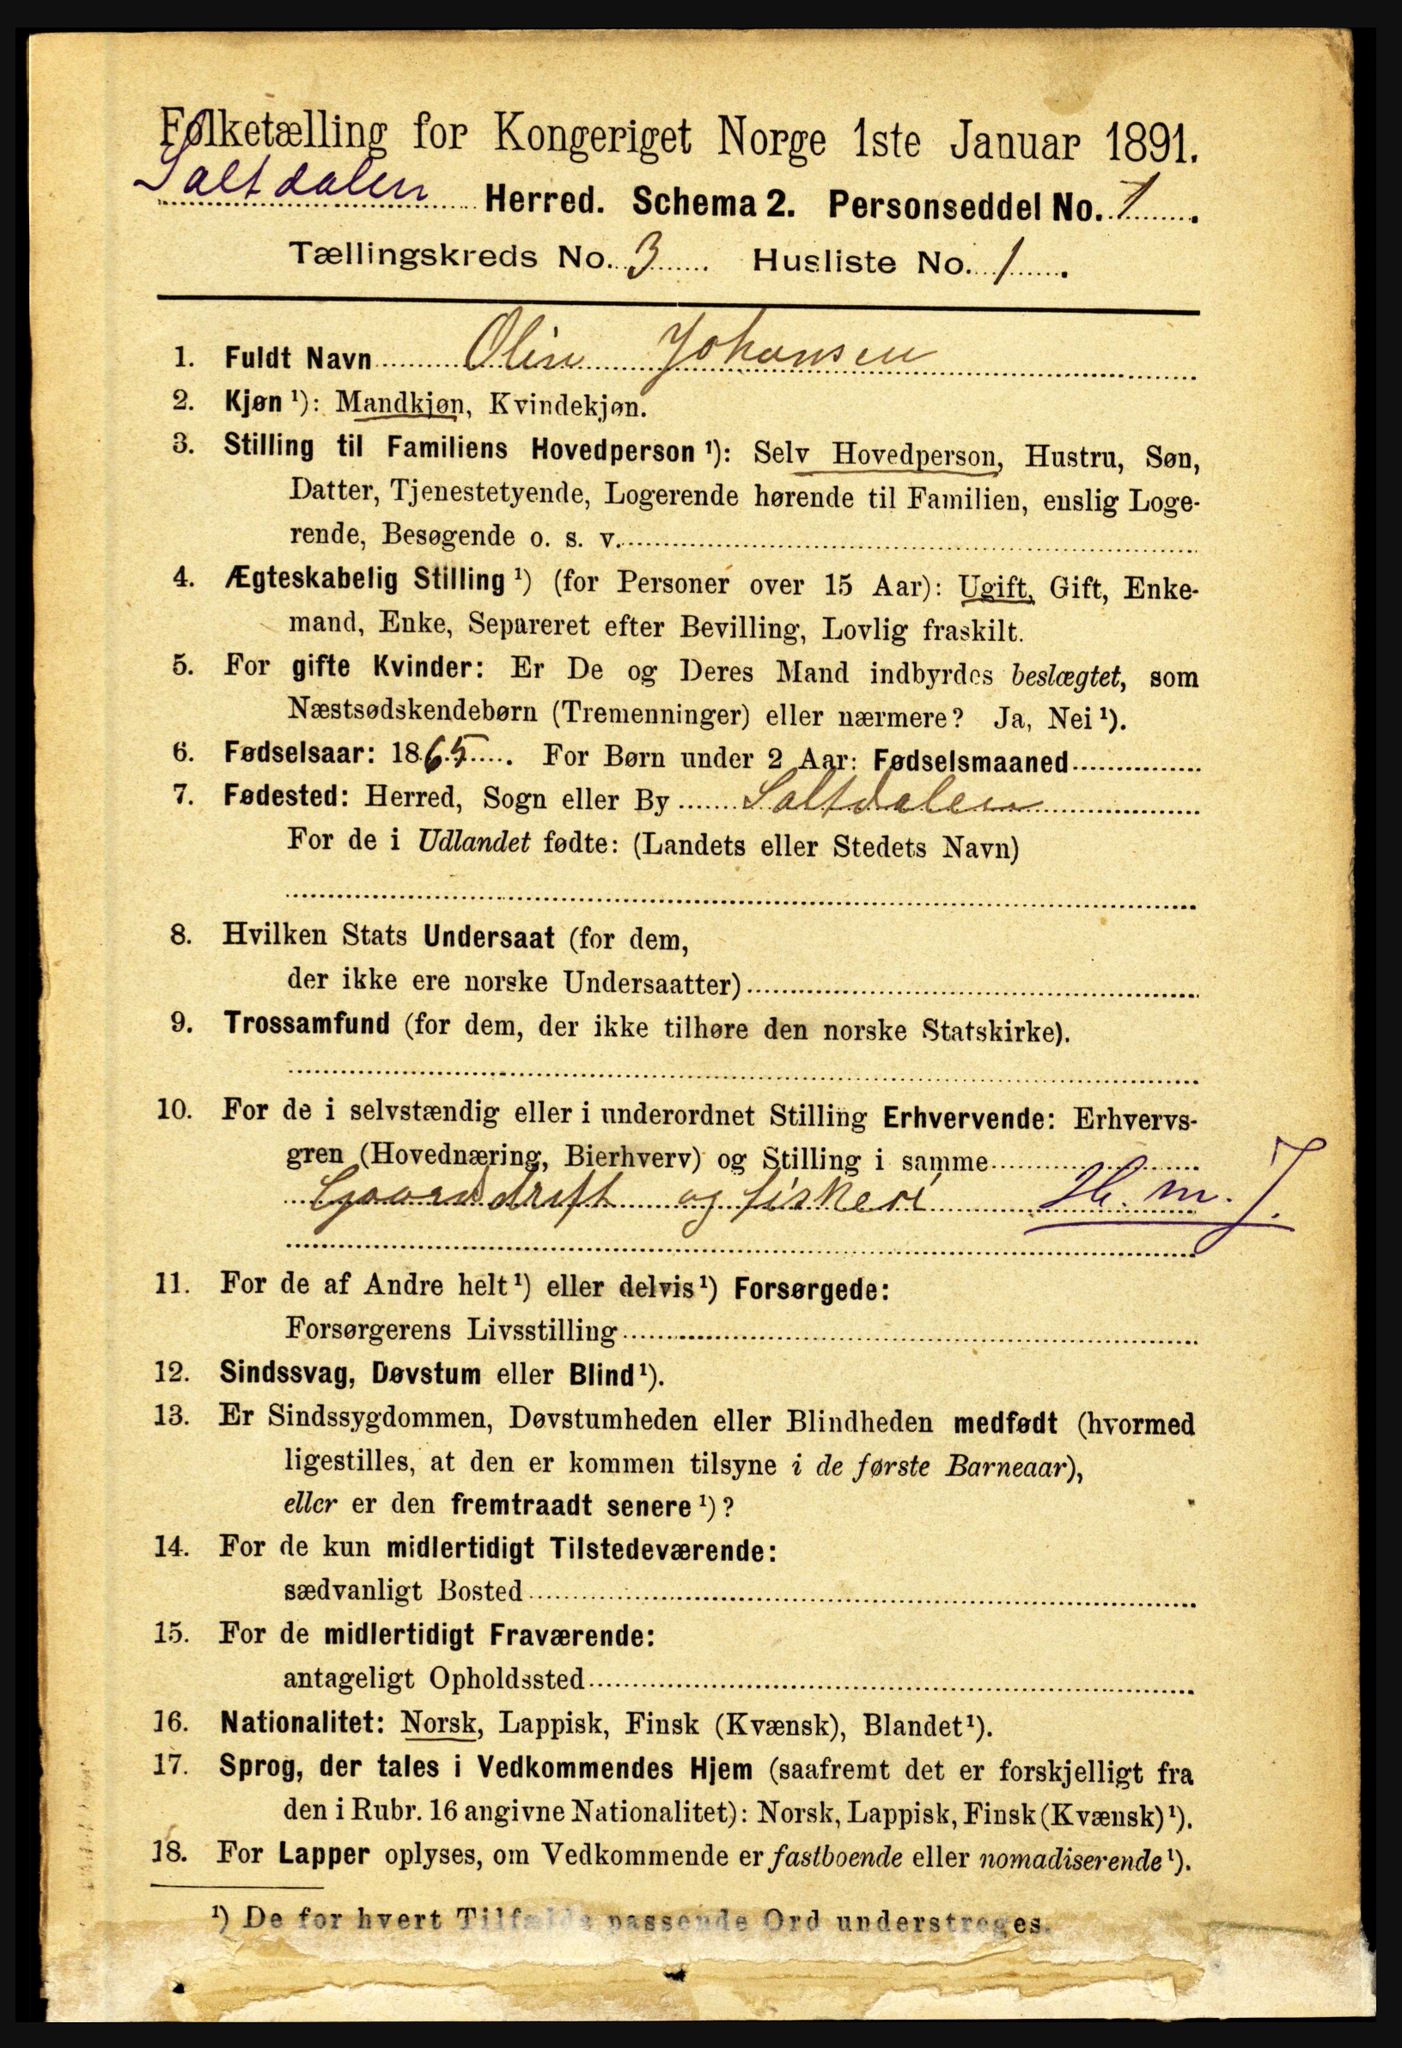 Folketælling for Kongeriget Norge 1ste Januar 1891.
Saltdalen Herred. Schema 2. Personseddel No. 1.
Tællingskreds No. 3. Husliste No. 1.
1. Fuldt Navn Olin Johansen
2. Kjøn ¹): Mandkjøn, Kvindekjøn.
3. Stilling til Familiens Hovedperson ¹): Selv Hovedperson, Hustru, Søn,
Datter, Tjenestetyende, Logerende hørende til Familien, enslig Loge-
rende, Besøgende o. s. v.
4. Ægteskabelig Stilling ¹) (for Personer over 15 Aar): Ugift, Gift, Enke-
mand, Enke, Separeret efter Bevilling, Lovlig fraskilt.
5. For gifte Kvinder: Er De og Deres Mand indbyrdes beslægtet, som
Næstsødskendebørn (Tremenninger) eller nærmere? Ja, Nei ¹).
6. Fødselsaar: 1865. For Børn under 2 Aar: Fødselsmaaned
7. Fødested: Herred, Sogn eller By Saltdalen
For de i Udlandet fødte: (Landets eller Stedets Navn)
8. Hvilken Stats Undersaat (for dem,
der ikke ere norske Undersaatter)
9. Trossamfund (for dem, der ikke tilhøre den norske Statskirke).
10. For de i selvstændig eller i underordnet Stilling Erhvervende: Erhvervs-
gren (Hovednæring, Bierhverv) og Stilling i samme
Gaardsdrift og fiskeri H. m. J.
11. For de af Andre helt ¹) eller delvis ¹) Forsørgede:
Forsørgerens Livsstilling
12. Sindssvag, Døvstum eller Blind ¹).
13. Er Sindssygdommen, Døvstumheden eller Blindheden medfødt (hvormed
ligestilles, at den er kommen tilsyne i de første Barneaar),
eller er den fremtraadt senere ¹)?
14. For de kun midlertidigt Tilstedeværende:
sædvanligt Bosted
15. For de midlertidigt Fraværende:
antageligt Opholdssted
16. Nationalitet: Norsk, Lappisk, Finsk (Kvænsk), Blandet ¹).
17. Sprog, der tales i Vedkommendes Hjem (saafremt det er forskjelligt fra
den i Rubr. 16 angivne Nationalitet): Norsk, Lappisk, Finsk (Kvænsk) ¹).
18. For Lapper oplyses, om Vedkommende er fastboende eller nomadiserende ¹).
¹) De for hvert Tilfælde passende Ord understreges.